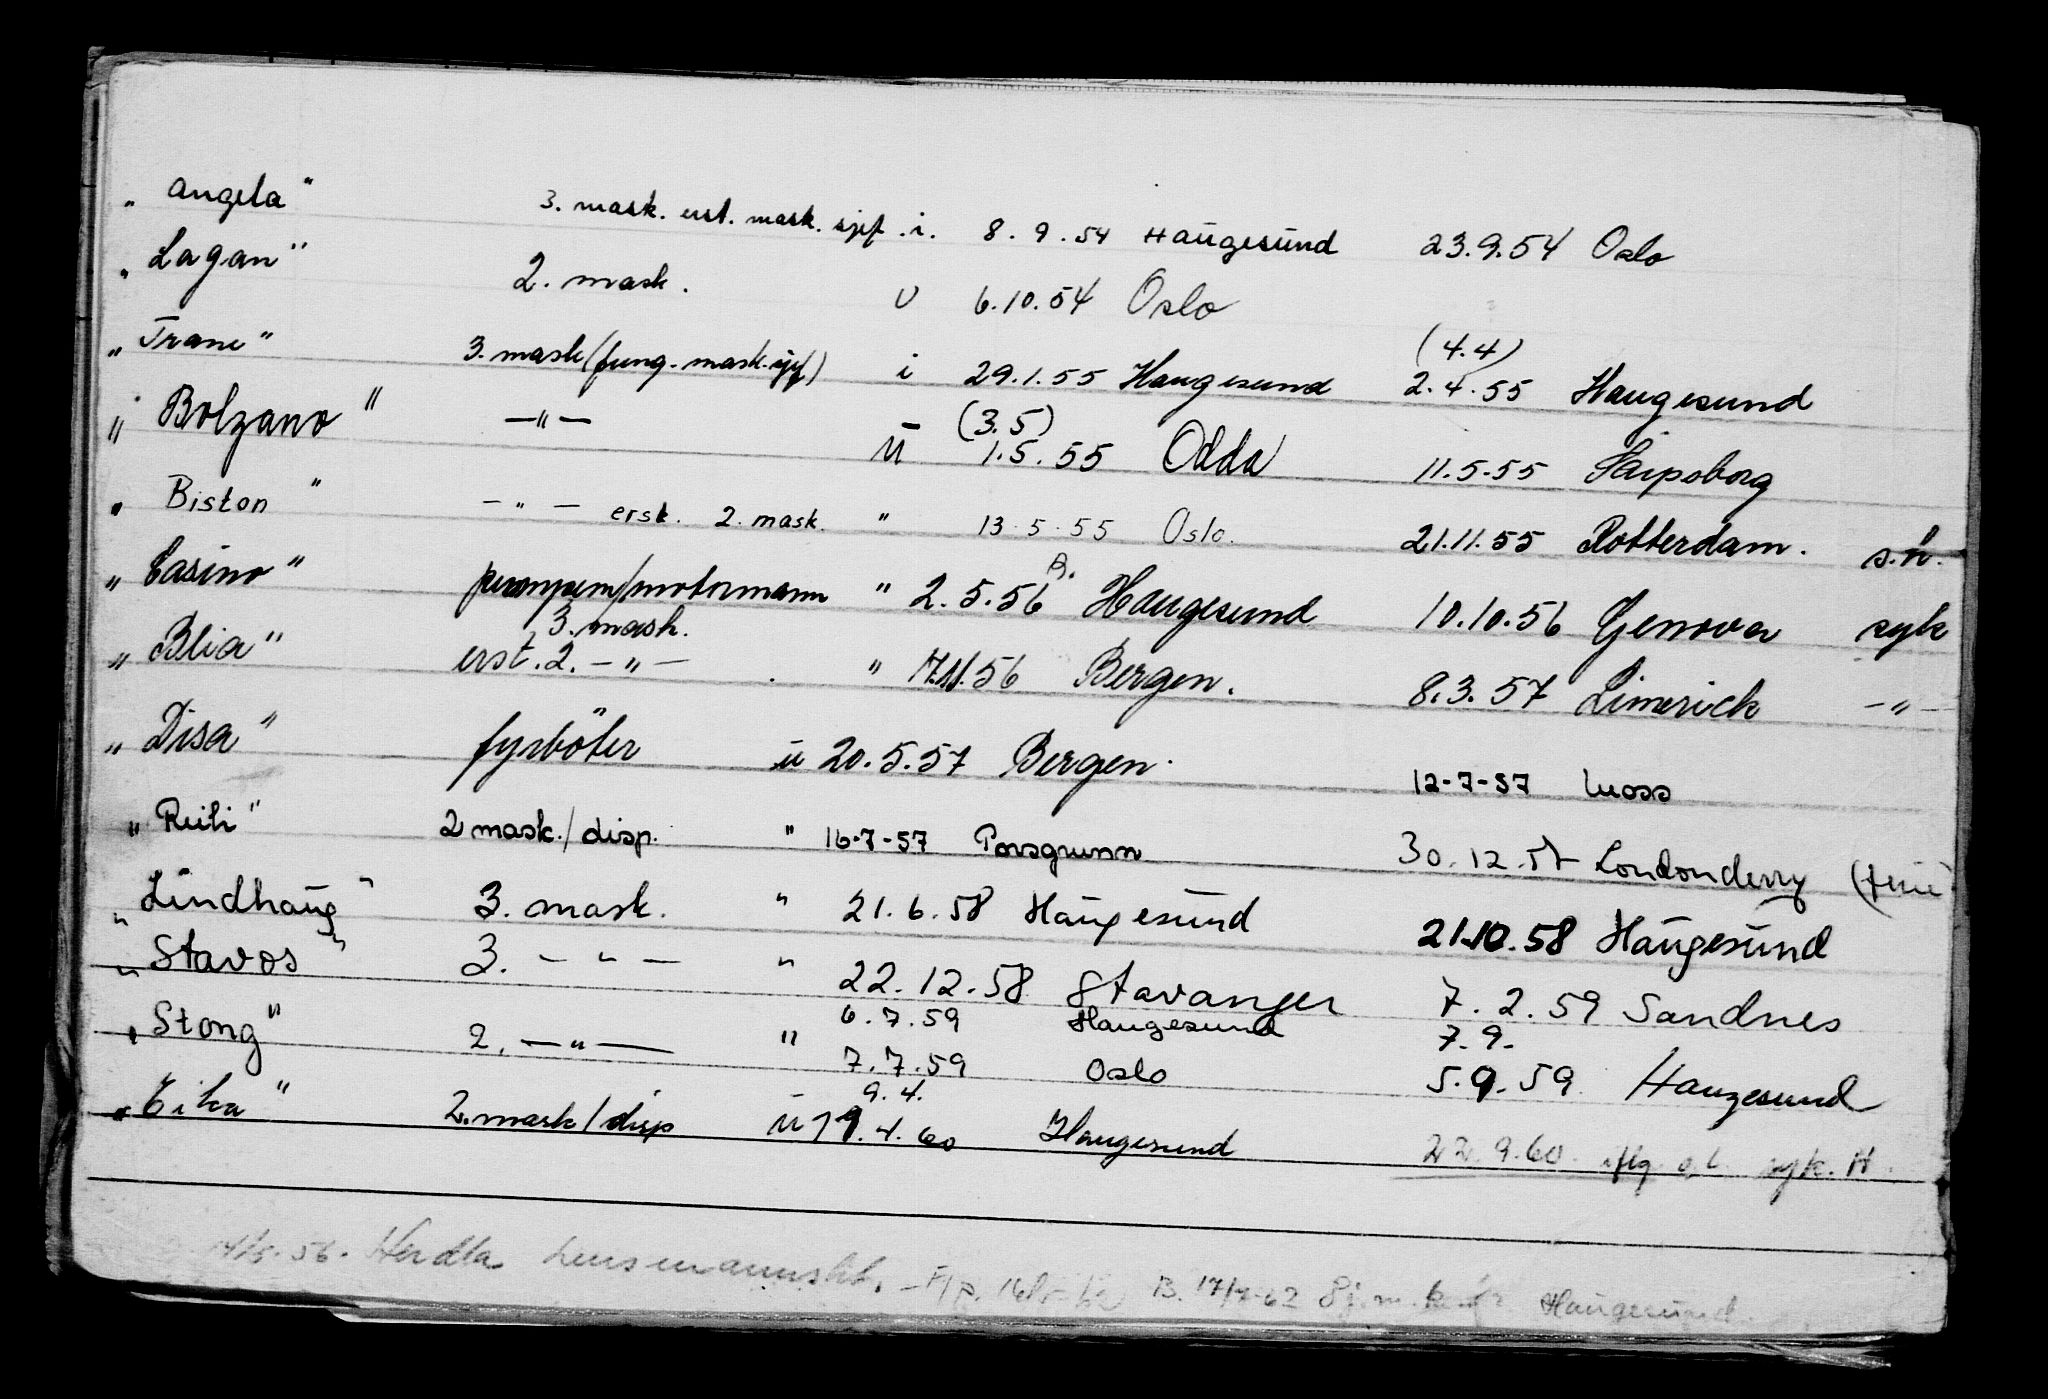 „ Angela" 3. mask. erst. mask. sjef .i. 8.9.54 Haugesund 23.9.54 Oslo
„ Lagan" 2. mask. U 6.10.54 Oslo
„ Trane" 3. mask (fung. mask. sjef) i 29.1.55 Haugesund (4.4) 2.4.55 Haugesund
„ Bolzano" —"— U (3.5) 1.5.55 Odda 11.5.55 Sarpsborg
„ Biston" —"— ersk. 2. mask. " 13.5.55 Oslo. 21.11.55 Rotterdam. s.h.
„ Casino" pumpem/motormann " 2.5.56 Haugesund 10.10.56 Genova syk
„ Blia" 3. mask. erst. 2. —"— " 17.11.56 Bergen. 8.3.57 Limerick —"—
„ Disa" fyrböter u 20.5.57 Bergen. 12-7-57 Moss
„ Ruth" 2 mask./disp. " 16-7-57 Porsgrunn 30.12.57 Londonderry (ferie
„ Lindhaug" 3. mask. " 21.6.58 Haugesund 21.10.58 Haugesund
„ Stavos" 3. —"— " 22.12.58 Stavanger 7.2.59 Sandnes
„ Stong" 2. —"— " 6.7.59 Haugesund 7.9.
7.7.59 Oslo 5.9.59 Haugesund
„ Eika" 2. mask/disp u 9.4. 19.4.60 Haugesund 22.9.60 iflg syk. H.
56. Herdla lensmannsktr. B. 17/ -62 Sj.m. Haugesund.